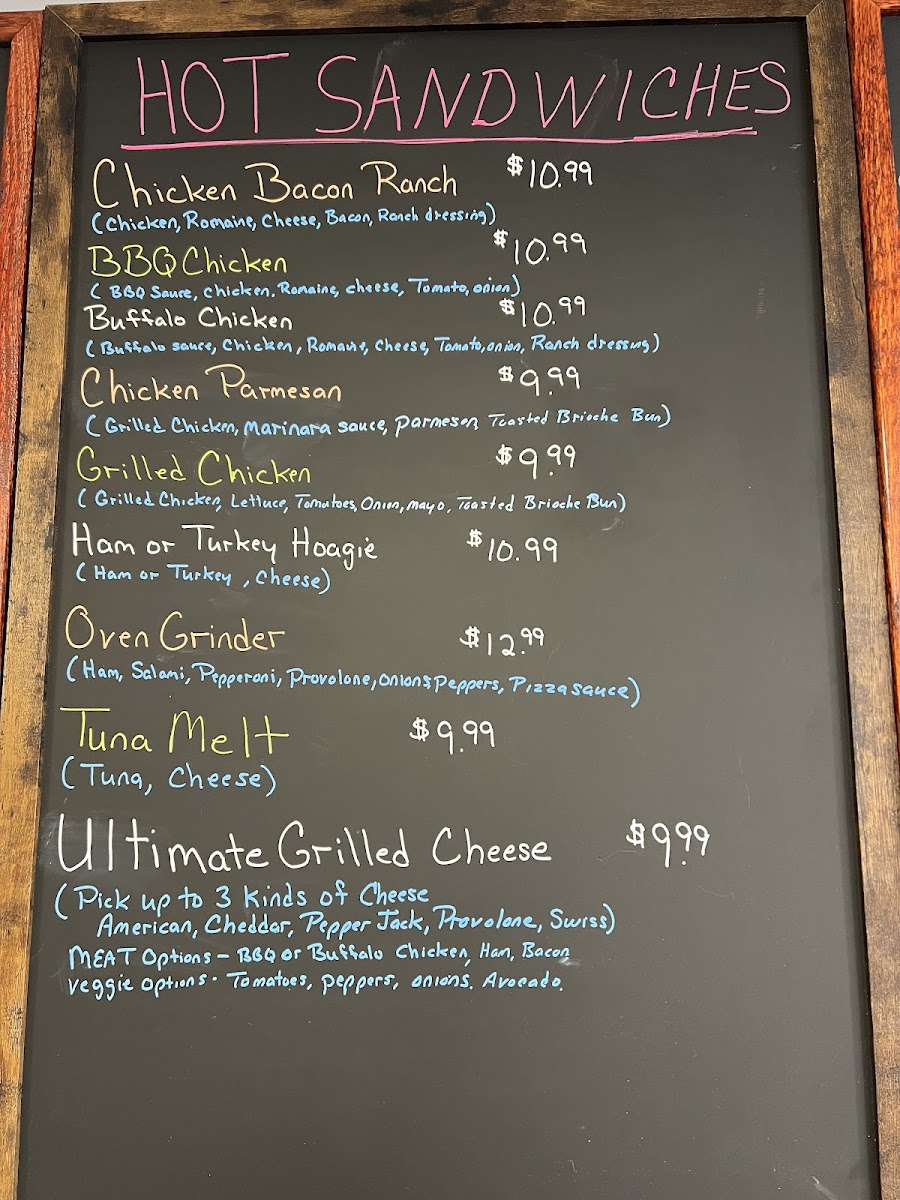 HOT SANDWICHES
Chicken Bacon Ranch $10.99
(Chicken, Romaine, Cheese, Bacon, Ranch dressing)
BBQ Chicken $10.99
( BBQ Sauce, chicken, Romaine, cheese, Tomato, onion)
Buffalo Chicken $10.99
(Buffalo sauce, Chicken, Romaine, Cheese, Tomato, onion, Ranch dressing)
Chicken Parmesan $9.99
( Grilled Chicken, Marinara sauce, parmesan Toasted Brioche Bun)
Grilled Chicken $9.99
( Grilled Chicken, Lettuce, Tomatoes, Onion, mayo, Toasted Brioche Bun)
Ham or Turkey Hoagie $10.99
( Ham or Turkey, Cheese)
Oven Grinder $12.99
(Ham, Salami, Pepperoni, Provolone, onions peppers, Pizza sauce)
Tuna Melt $9.99
(Tuna, Cheese)
Ultimate Grilled Cheese $9.99
(Pick up to 3 kinds of Cheese
American, Cheddar, Pepper Jack, Provolone, Swiss)
MEAT Options - BBQ or Buffalo Chicken, Ham, Bacon
veggie options · Tomatoes, peppers, onions. Avocado.